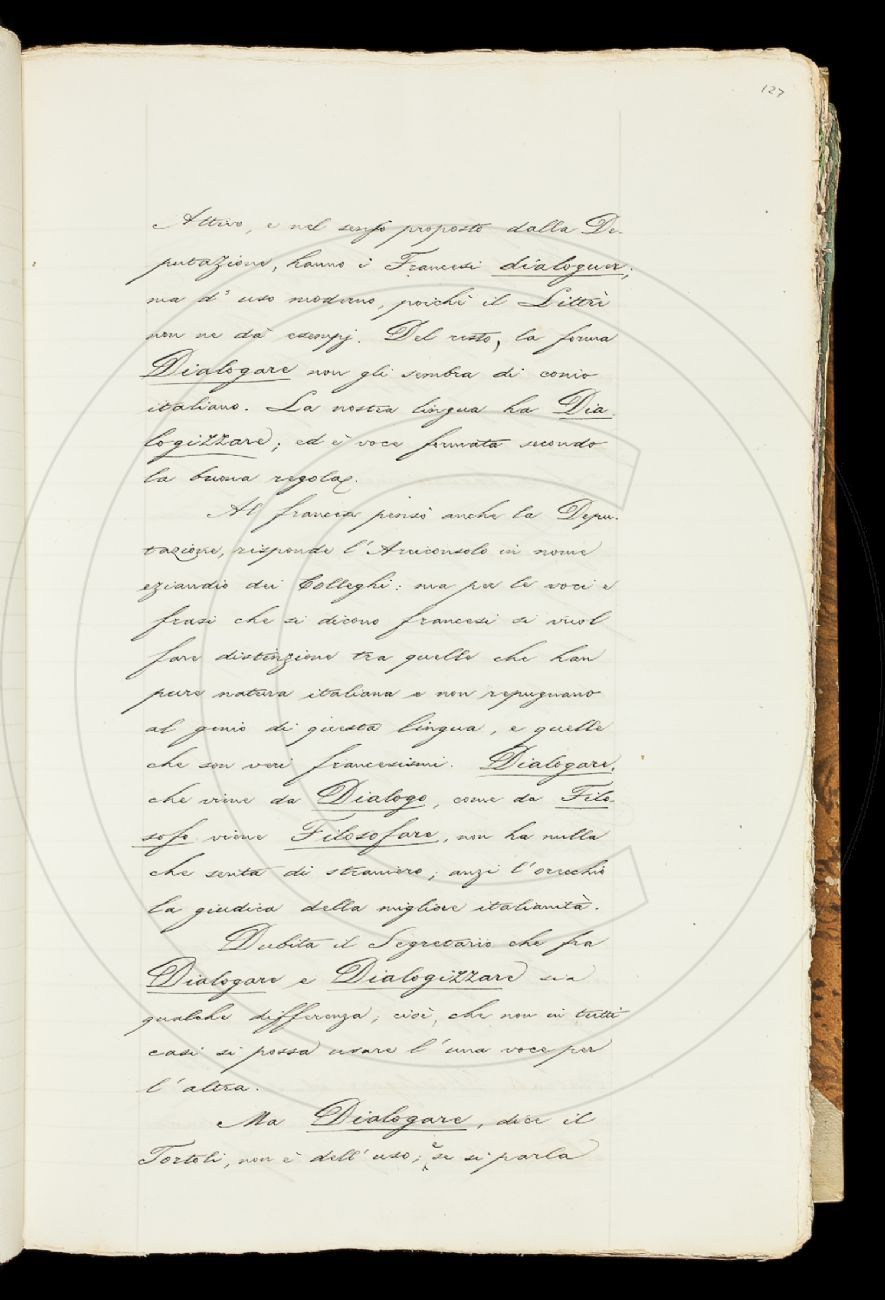 127
Attivo, e nel senso proposto dalla De-
putazione, hanno i Francesi dialoguer;
ma d'uso moderno, poichè il Littrè
non ne dà esempj. Del resto, la forma
Dialogare non gli sembra di conio
italiano. La nostra lingua ha Dia-
logizzare; ed è voce formata secondo
la buona regola.
Al francese pensò anche la Depu-
tazione, risponde l'Arciconsolo in nome
eziandio dei Colleghi: ma per le voci e
frasi che si dicono francesi si vuol
fare distinzione tra quelle che han
pure natura italiana e non repugnano
al genio di questa lingua, e quelle
che son veri francesismi. Dialogare,
che viene da Dialogo, come da Filo-
sofo viene Filosofare, non ha nulla
che senta di straniero; anzi l'orecchio
la giudica della migliore italianità.
Dubita il Segretario che fra
Dialogare e Dialogizzare sia
qualche differenza; cioè, che non in tutti
casi si possa usare l'una voce per
l'altra.
Ma Dialogare, dice il
Tortoli, non è dell'uso; e se si parla